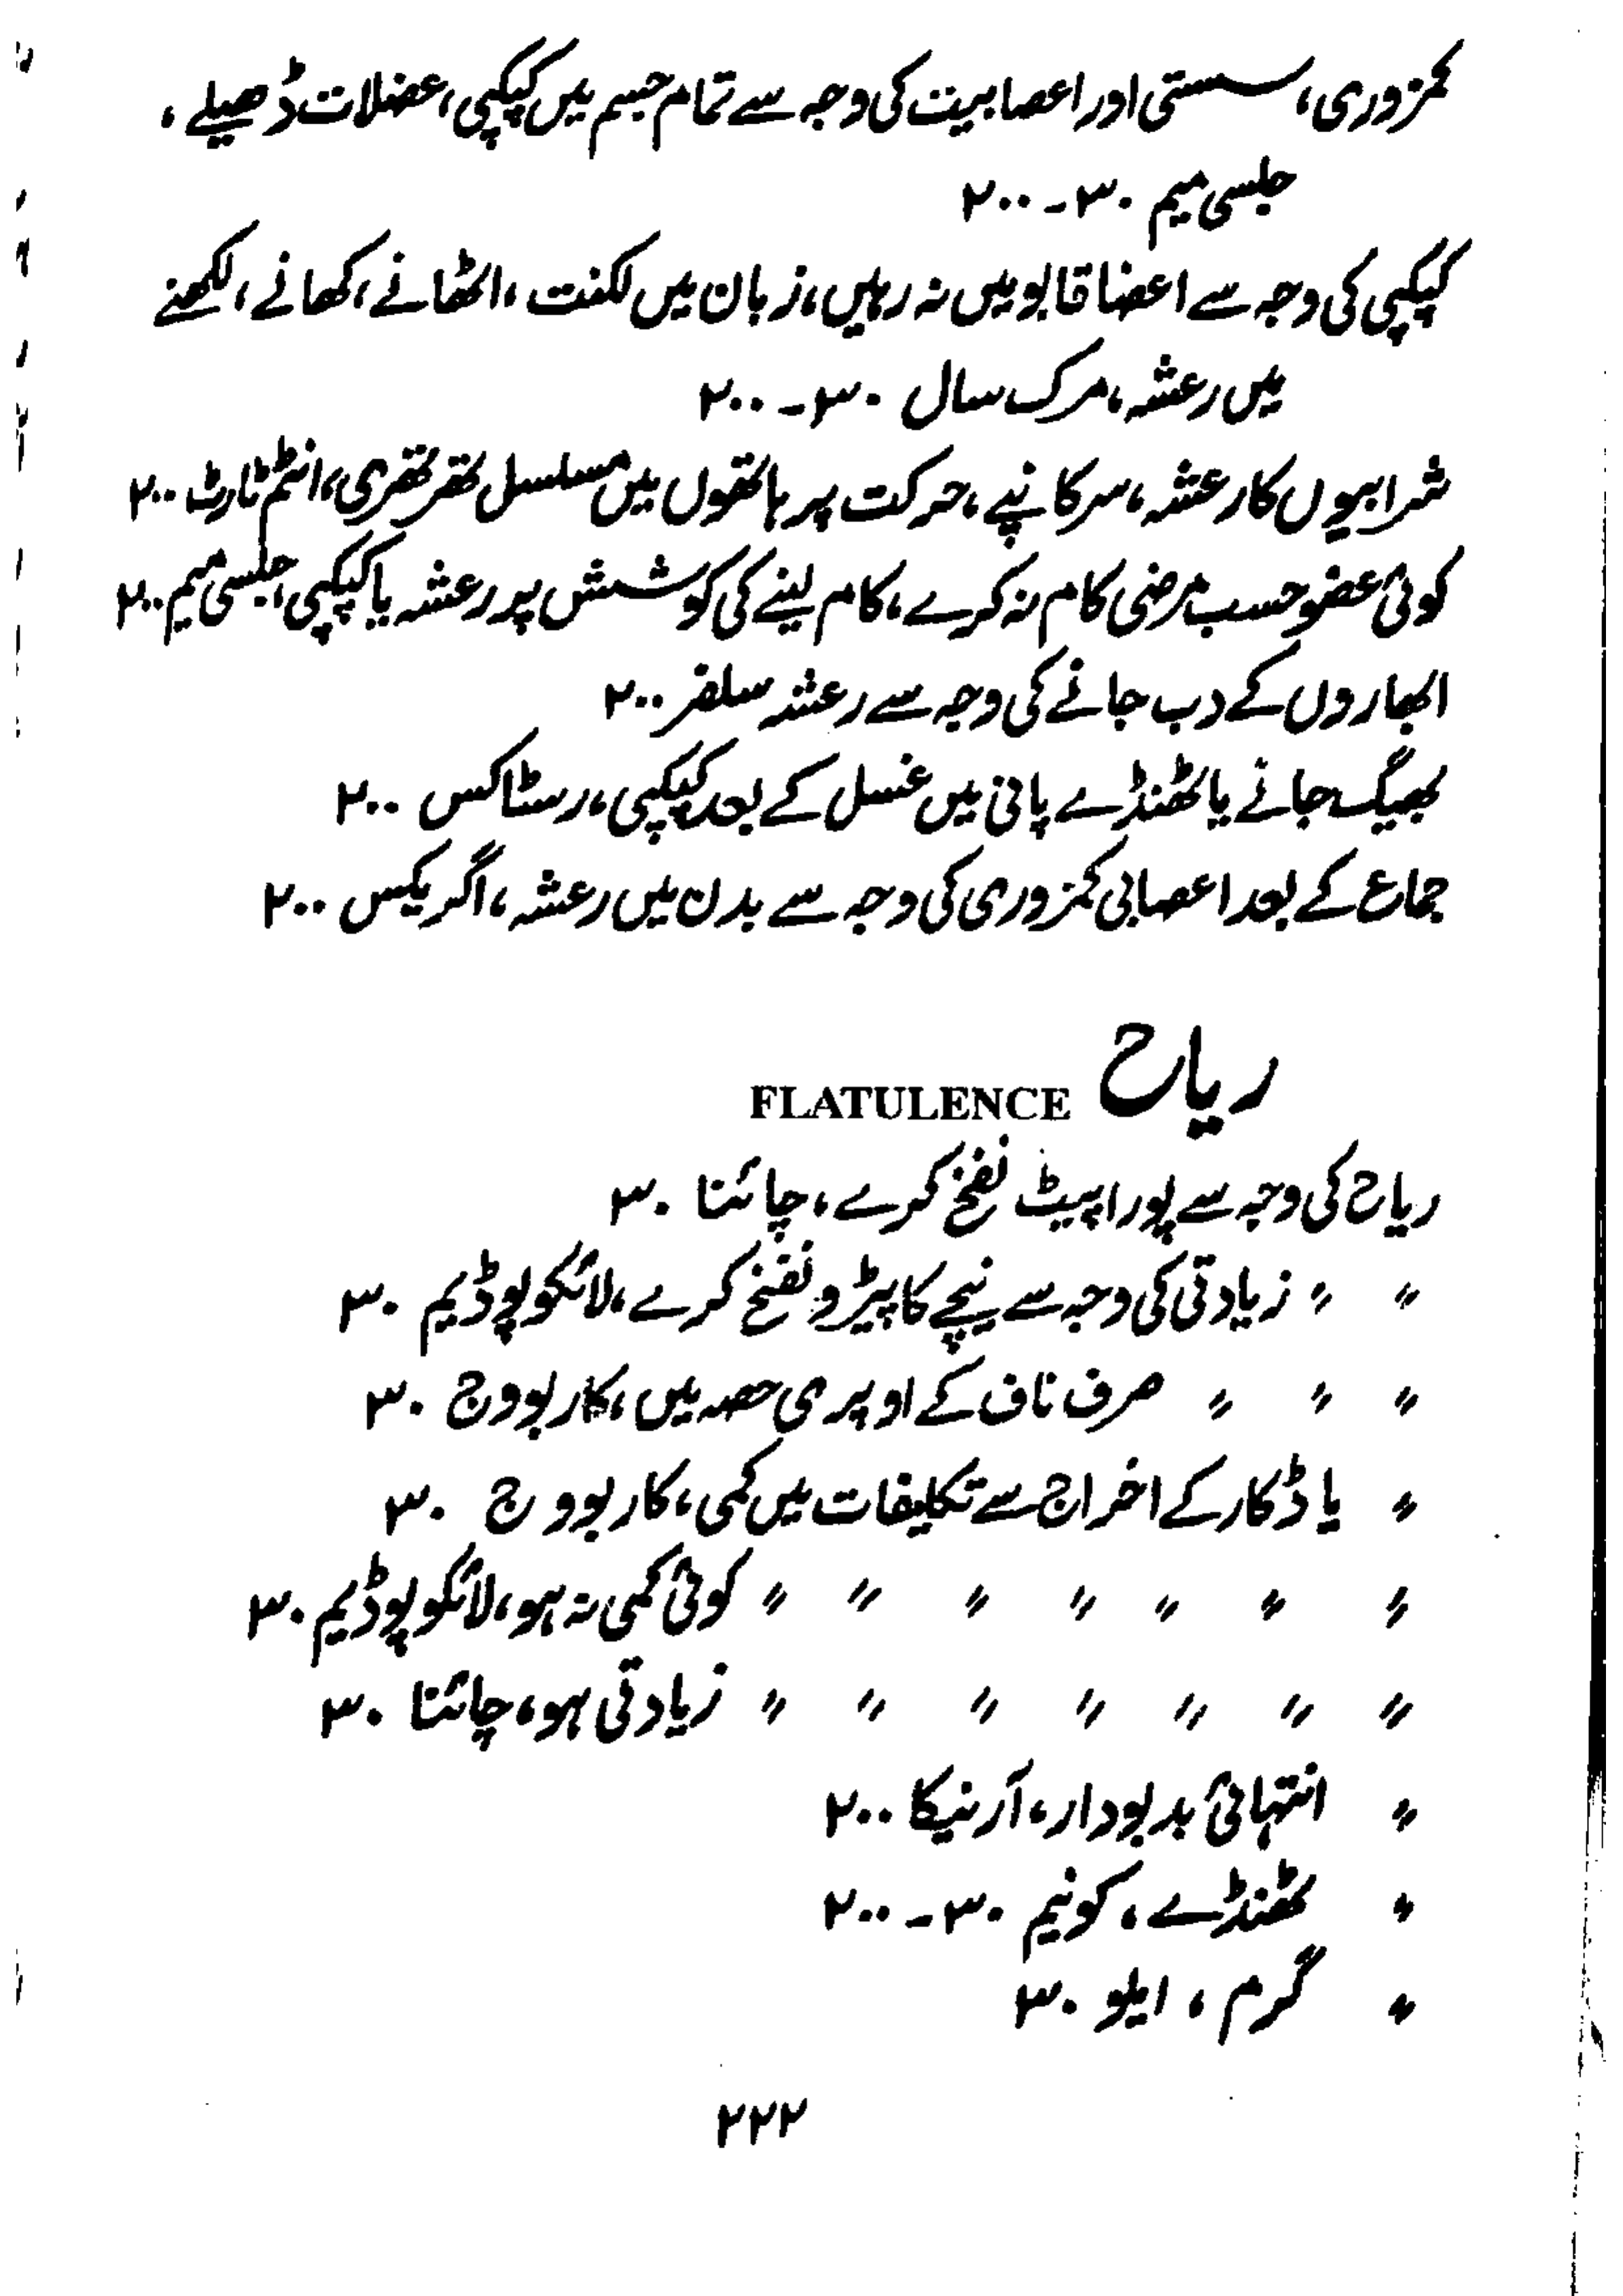 کمزوری، سستی اور اعصابیت کی وجہ سے تمام جسم میں کپکپی، عضلات ڈھیلے،
جلسی میم ۳۰۔۲۰۰
کپکپی کی وجہ سے اعضا قابو میں نہ رہیں، زبان میں لکنت، اٹھانے، کھانے، لکھنے
میں رعشہ، مرک سال ۳۰۔۲۰۰
شرابیوں کا رعشہ، سر کانپے، حرکت پر ہاتھوں میں مسلسل تھرتھری، انٹم ٹارٹ ۲۰۰
کوئی عضو حسب مرضی کام نہ کرے، کام لینے کی کوشش پر رعشہ یا کپکپی، جلسی میم ۲۰۰
ابھاروں کے دب جانے کی وجہ سے رعشہ سلفر ۲۰۰
بھیگ جانے یا ٹھنڈے پانی میں غسل کے بعد کپکپی، رسٹاکس ۲۰۰
جماع کے بعد اعصابی کمزوری کی وجہ سے بدن میں رعشہ، اگریکس ۲۰۰
ریاح FLATULENCE
ریاح کی وجہ سے پورا پیٹ نفخ کرے، چائنا ۳۰
〃 〃 زیادتی کی وجہ سے نیچے کا پیڑو نفخ کرے، لائکوپوڈیم ۳۰
〃 〃 〃 صرف ناف کے اوپری حصہ میں، کاربووج ۳۰
〃 یا ڈکار کے اخراج سے تکلیفات میں کمی، کاربووج ۳۰
〃 〃 〃 〃 〃 〃 〃 کوئی کمی نہ ہو، لائکوپوڈیم ۳۰
〃 〃 〃 〃 〃 〃 〃 زیادتی ہو، چائنا ۳۰
〃 انتہائی بدبودار، آرنیکا ۲۰۰
〃 ٹھنڈے، کونیم ۳۰۔۲۰۰
〃 گرم، ایلو ۳۰
۲۲۲